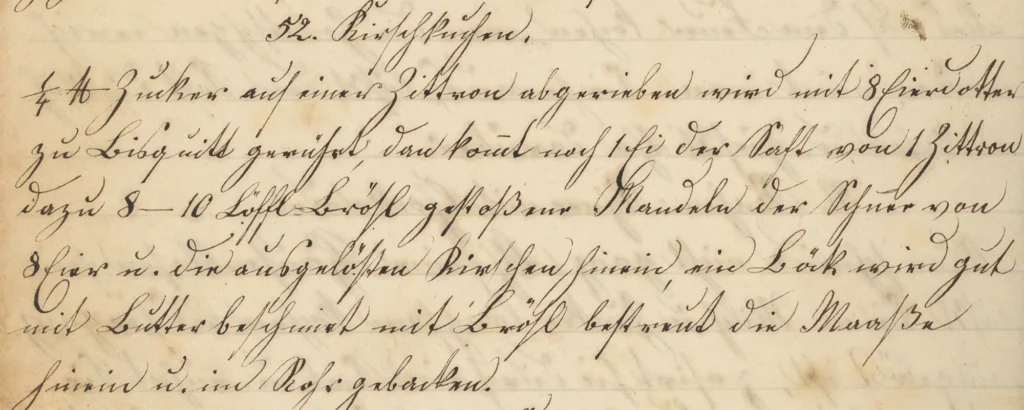 52. Kirschkuchen.
¼ ℔ Zucker auf einer Zittron abgerieben wird mit 8 Eierdotter
zu Bisquitt gerührt, dan kom̄t noch 1 Ei der Saft von 1 Zittron
dazu 8–10 Löffl Brösl gestoßene Mandeln der Schnee von
8 Eier u. die ausgelösten Kirschen hinein, ein Böck wird gut
mit Butter beschmirt mit Brösl bestreut die Maaße
hinein u. im Rohr gebacken.